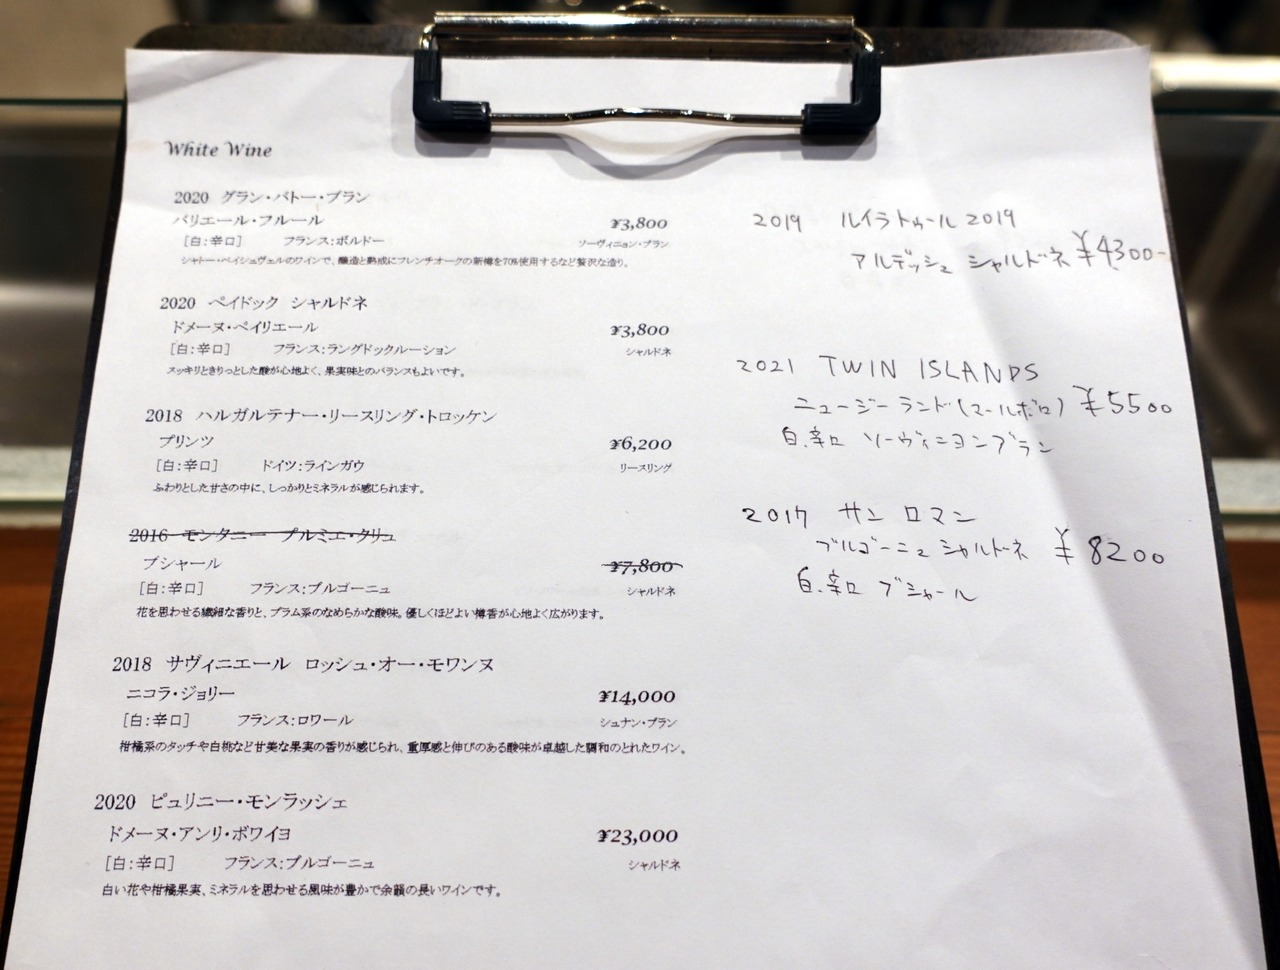 White Wine
2020 グラン・バトー・ブラン
バリエール・フルール ¥3,800
［白：辛口］ フランス：ボルドー ソーヴィニョン・ブラン
シャトー・ベイシュヴェルのワインで、醸造と熟成にフレンチオークの新樽を70%使用するなど贅沢な造り。
2020 ペイドック シャルドネ
ドメーヌ・ペイリエール ¥3,800
［白：辛口］ フランス：ラングドックルーション シャルドネ
スッキリときりっとした酸が心地よく、果実味とのバランスもよいです。
2018 ハルガルテナー・リースリング・トロッケン
プリンツ ¥6,200
［白：辛口］ ドイツ：ラインガウ リースリング
ふわりとした甘さの中に、しっかりとミネラルが感じられます。
2016 モンタニー プルミエ・クリュ
ブシャール ¥7,800
［白：辛口］ フランス：ブルゴーニュ シャルドネ
花を思わせる繊細な香りと、プラム系のなめらかな酸味。優しくほどよい樽香が心地よく広がります。
2018 サヴィニエール ロッシュ・オー・モワンヌ
ニコラ・ジョリー ¥14,000
［白：辛口］ フランス：ロワール シュナン・ブラン
柑橘系のタッチや白桃など甘美な果実の香りが感じられ、重厚感と伸びのある酸味が卓越した調和のとれたワイン。
2020 ピュリニー・モンラッシェ
ドメーヌ・アンリ・ボワイヨ ¥23,000
［白：辛口］ フランス：ブルゴーニュ シャルドネ
白い花や柑橘果実、ミネラルを思わせる風味が豊かで余韻の長いワインです。
2019 ルイラトゥール 2019
アルデッシュ シャルドネ ¥4300-
2021 TWIN ISLANDS
ニュージーランド(マールボロ) ¥5500
白.辛口 ソーヴィニヨンブラン
2017 サン ロマン
ブルゴーニュ シャルドネ ¥8200
白.辛口 ブシャール